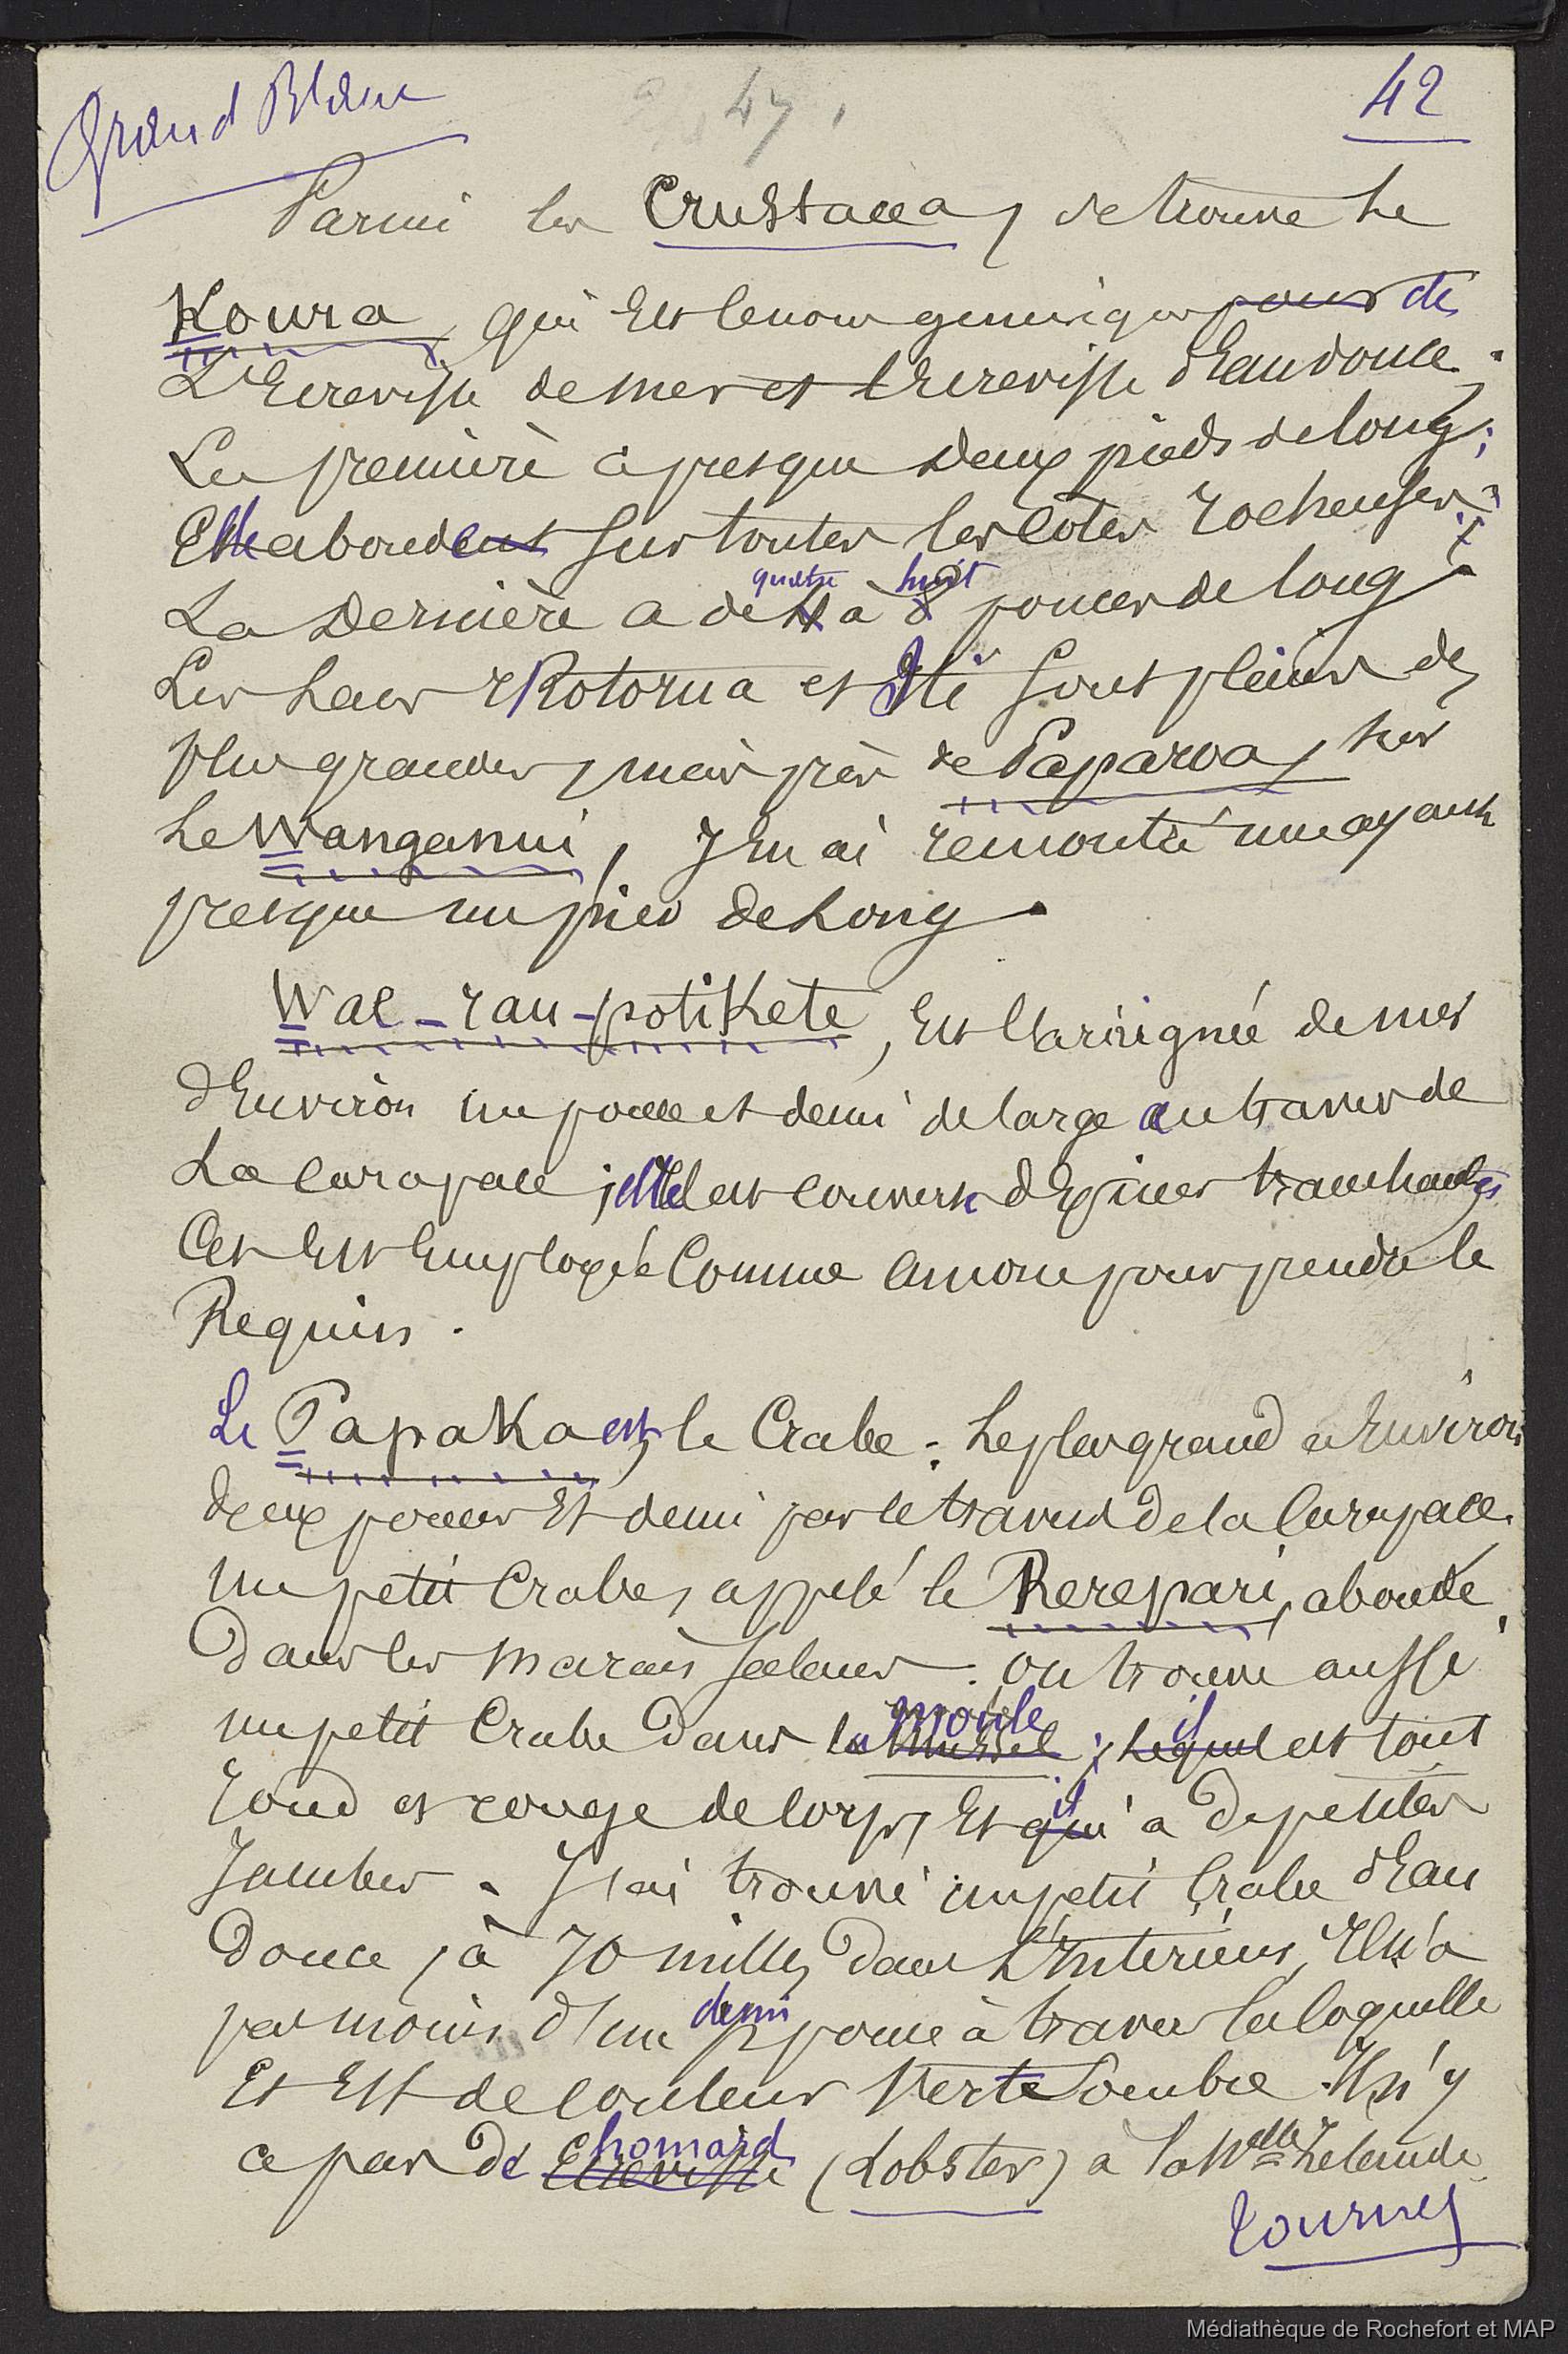 Grand Blanc
47.
42
Parmi les Crustacea, se trouve le
Koura, qui Est le nom generique pour de
L'Ecrevisse de mer et l'Ecrevisse d'Eau douce.
La première a presque deux pieds de long;
Elle abondent sur toutes les côtes rocheuses;
quatre huit
La dernière a de 4 à 8 pouces de long.
Les Lacs Rotorua et Iti sont pleins de
plus grandes, mais près de Paparoa, sur
le Wanganui, J'En ai remontré une ayant
presque un pied de Long.
Wae-rau-potiKete, Est l'araignée de mer
d'Environ un pouce et demi de large au travers de
La carapace; elle est couverte d'Epines tranchantes
Cet Est Employée Comme amorce pour prendre le
Requin.
Le PapaKa est, le Crabe: Le plus grand a Environ
deux pouces Et demi par le travers de la Carapace.
Un petit Crabe, appelé le Rerepari, abonde
Dans les marais salants. On trouve aussi
moule il
un petit Crabe Dans la Mussel; Lequel est tout
il
rond et rouge de corps, Et qui a de petites
Jambes. J'ai trouvé un petit Crabe d'Eau
Douce, à 70 milles Dans L'Interieur, Il n'a
demi
pas moins d'un ½ pouce à travers la coquille
Et Est de couleur Verte Sombre. Il n'y
homard
a pas de Ecrevisse (Lobster) à la Nelle Zelande
Tournez
Médiathèque de Rochefort et MAP